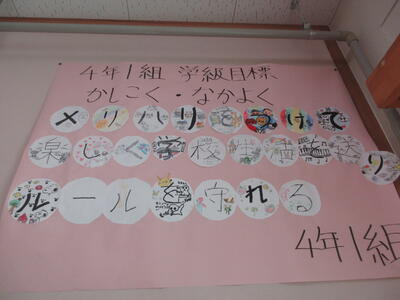 4年1組 学級目標
かしこく・なかよく
メリハリをつけて
楽しく学校生活を送り
ルールを守れる
4年1組